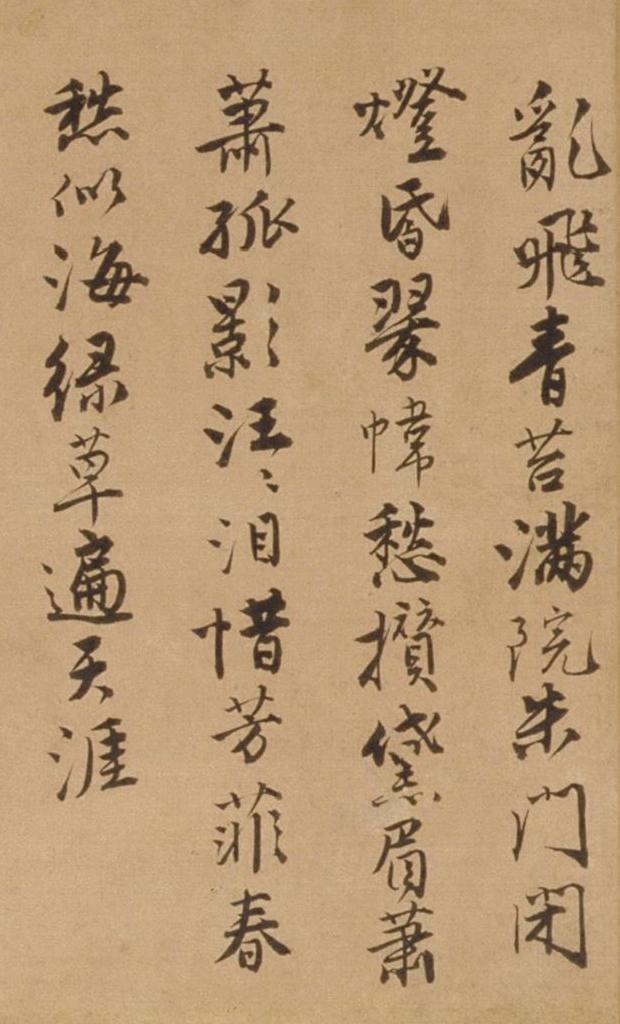 亂飛青苔滿院朱門閉
燈昏翠幃愁攢黛眉蕭
蕭孤影汪〻泪惜芳菲春
愁似海綠草遍天涯